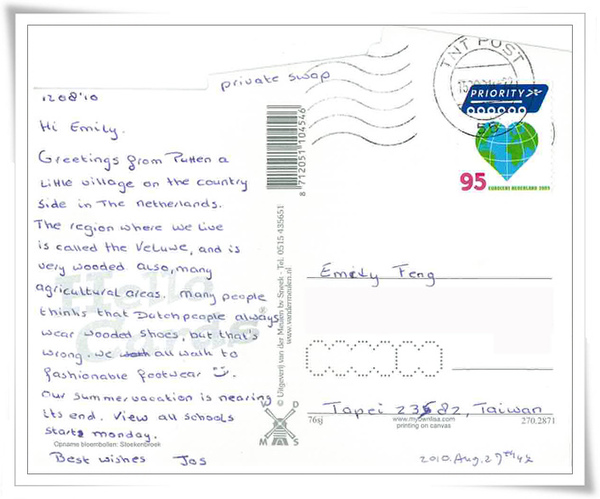 private swap
12 08 '10
Hi Emily.
Greetings from Putten a
little village on the country
side in The Netherlands.
The region where we live
is called the Veluwe, and is
very wooded also, many
agricultural areas. many people
thinks that Dutch people always
wear wooded shoes, but that's
wrong. we all walk to
fashionable footwear
Our summervacation is nearing
its end. View all schools
starts monday.
Best wishes Jos
Opname bloembollen: Sloekenbroek
Hello
Cards
8 712051 104546
© Uitgeverij van der Meulen bv Sneek - Tel. 0515 435651
www.vandermeulen.nl
V D
M S
TNT POST
PRIORITY
95
NEDERLAND
Emily Feng
Tapei 23582, Taiwan
76sj
www.myownlisa.com
printing on canvas
270.2871
2010. Aug. 27th